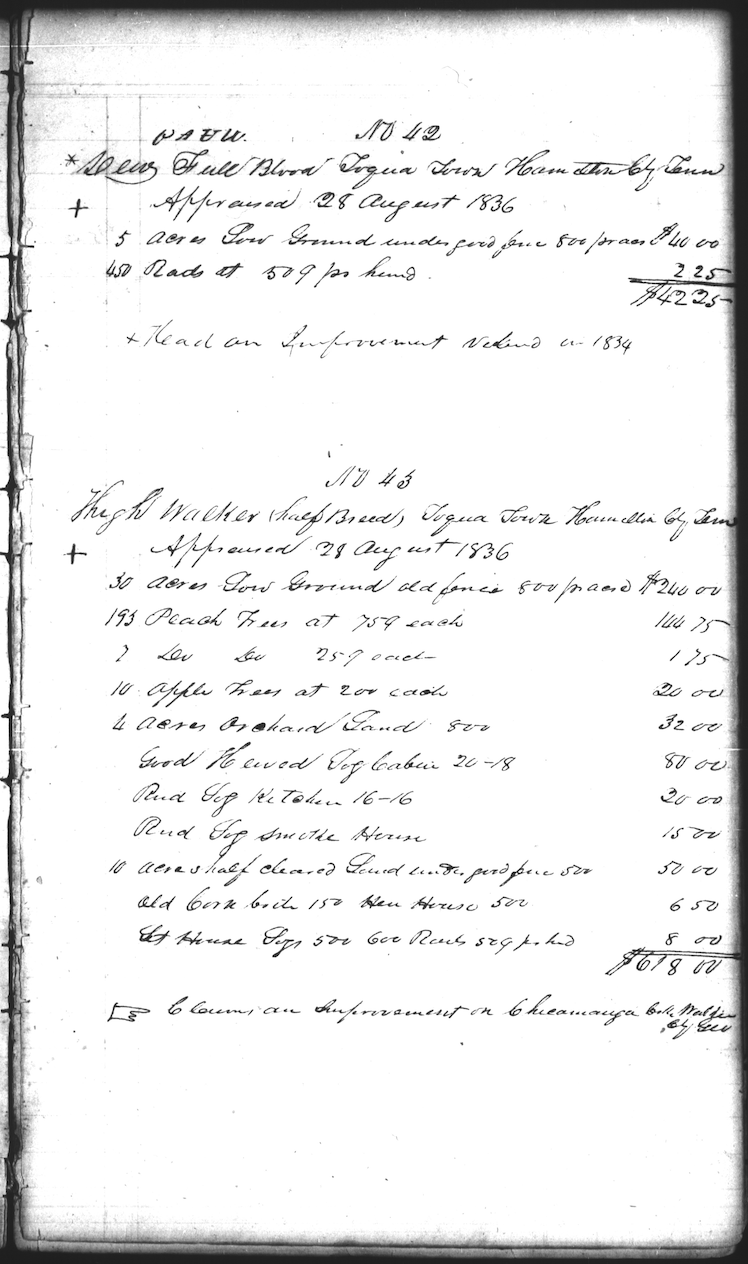 No 42
* Dew Full Blood Toqua Town Hamilton Cty Tenn
+ Appraised 28 August 1836
5 acres Low Ground under good fence 800 pr acre $40 00
450 Rails at 50 ₵ pr hund. 2 25
$42 25
+ Head an Improvement in 1834
No 43
Hugh Walker (half Breed) Toqua Town Hamilton Cty Tenn
+ Appraised 28 August 1836
30 acres Low Ground old fence 800 pr acre $240 00
193 Peach Trees at 75₵ each 144 75
7 Do Do 25₵ each 1 75
10 Apple Trees at 200 each 20 00
4 acres Orchard Land 800 32 00
Good Hewed Log Cabin 20-18 80 00
Rnd Log Kitchen 16-16 20 00
Rnd Log smoke House 15 00
10 acres half cleared Land under good fence 500 50 00
Old Corn Crib 150 Hen House 500 6 50
House Logs 500 600 Rails 50₵ pr hd 8 00
$618 00
☞ Claims an Improvement on Chicamauga Crk Walker
Cty Geo